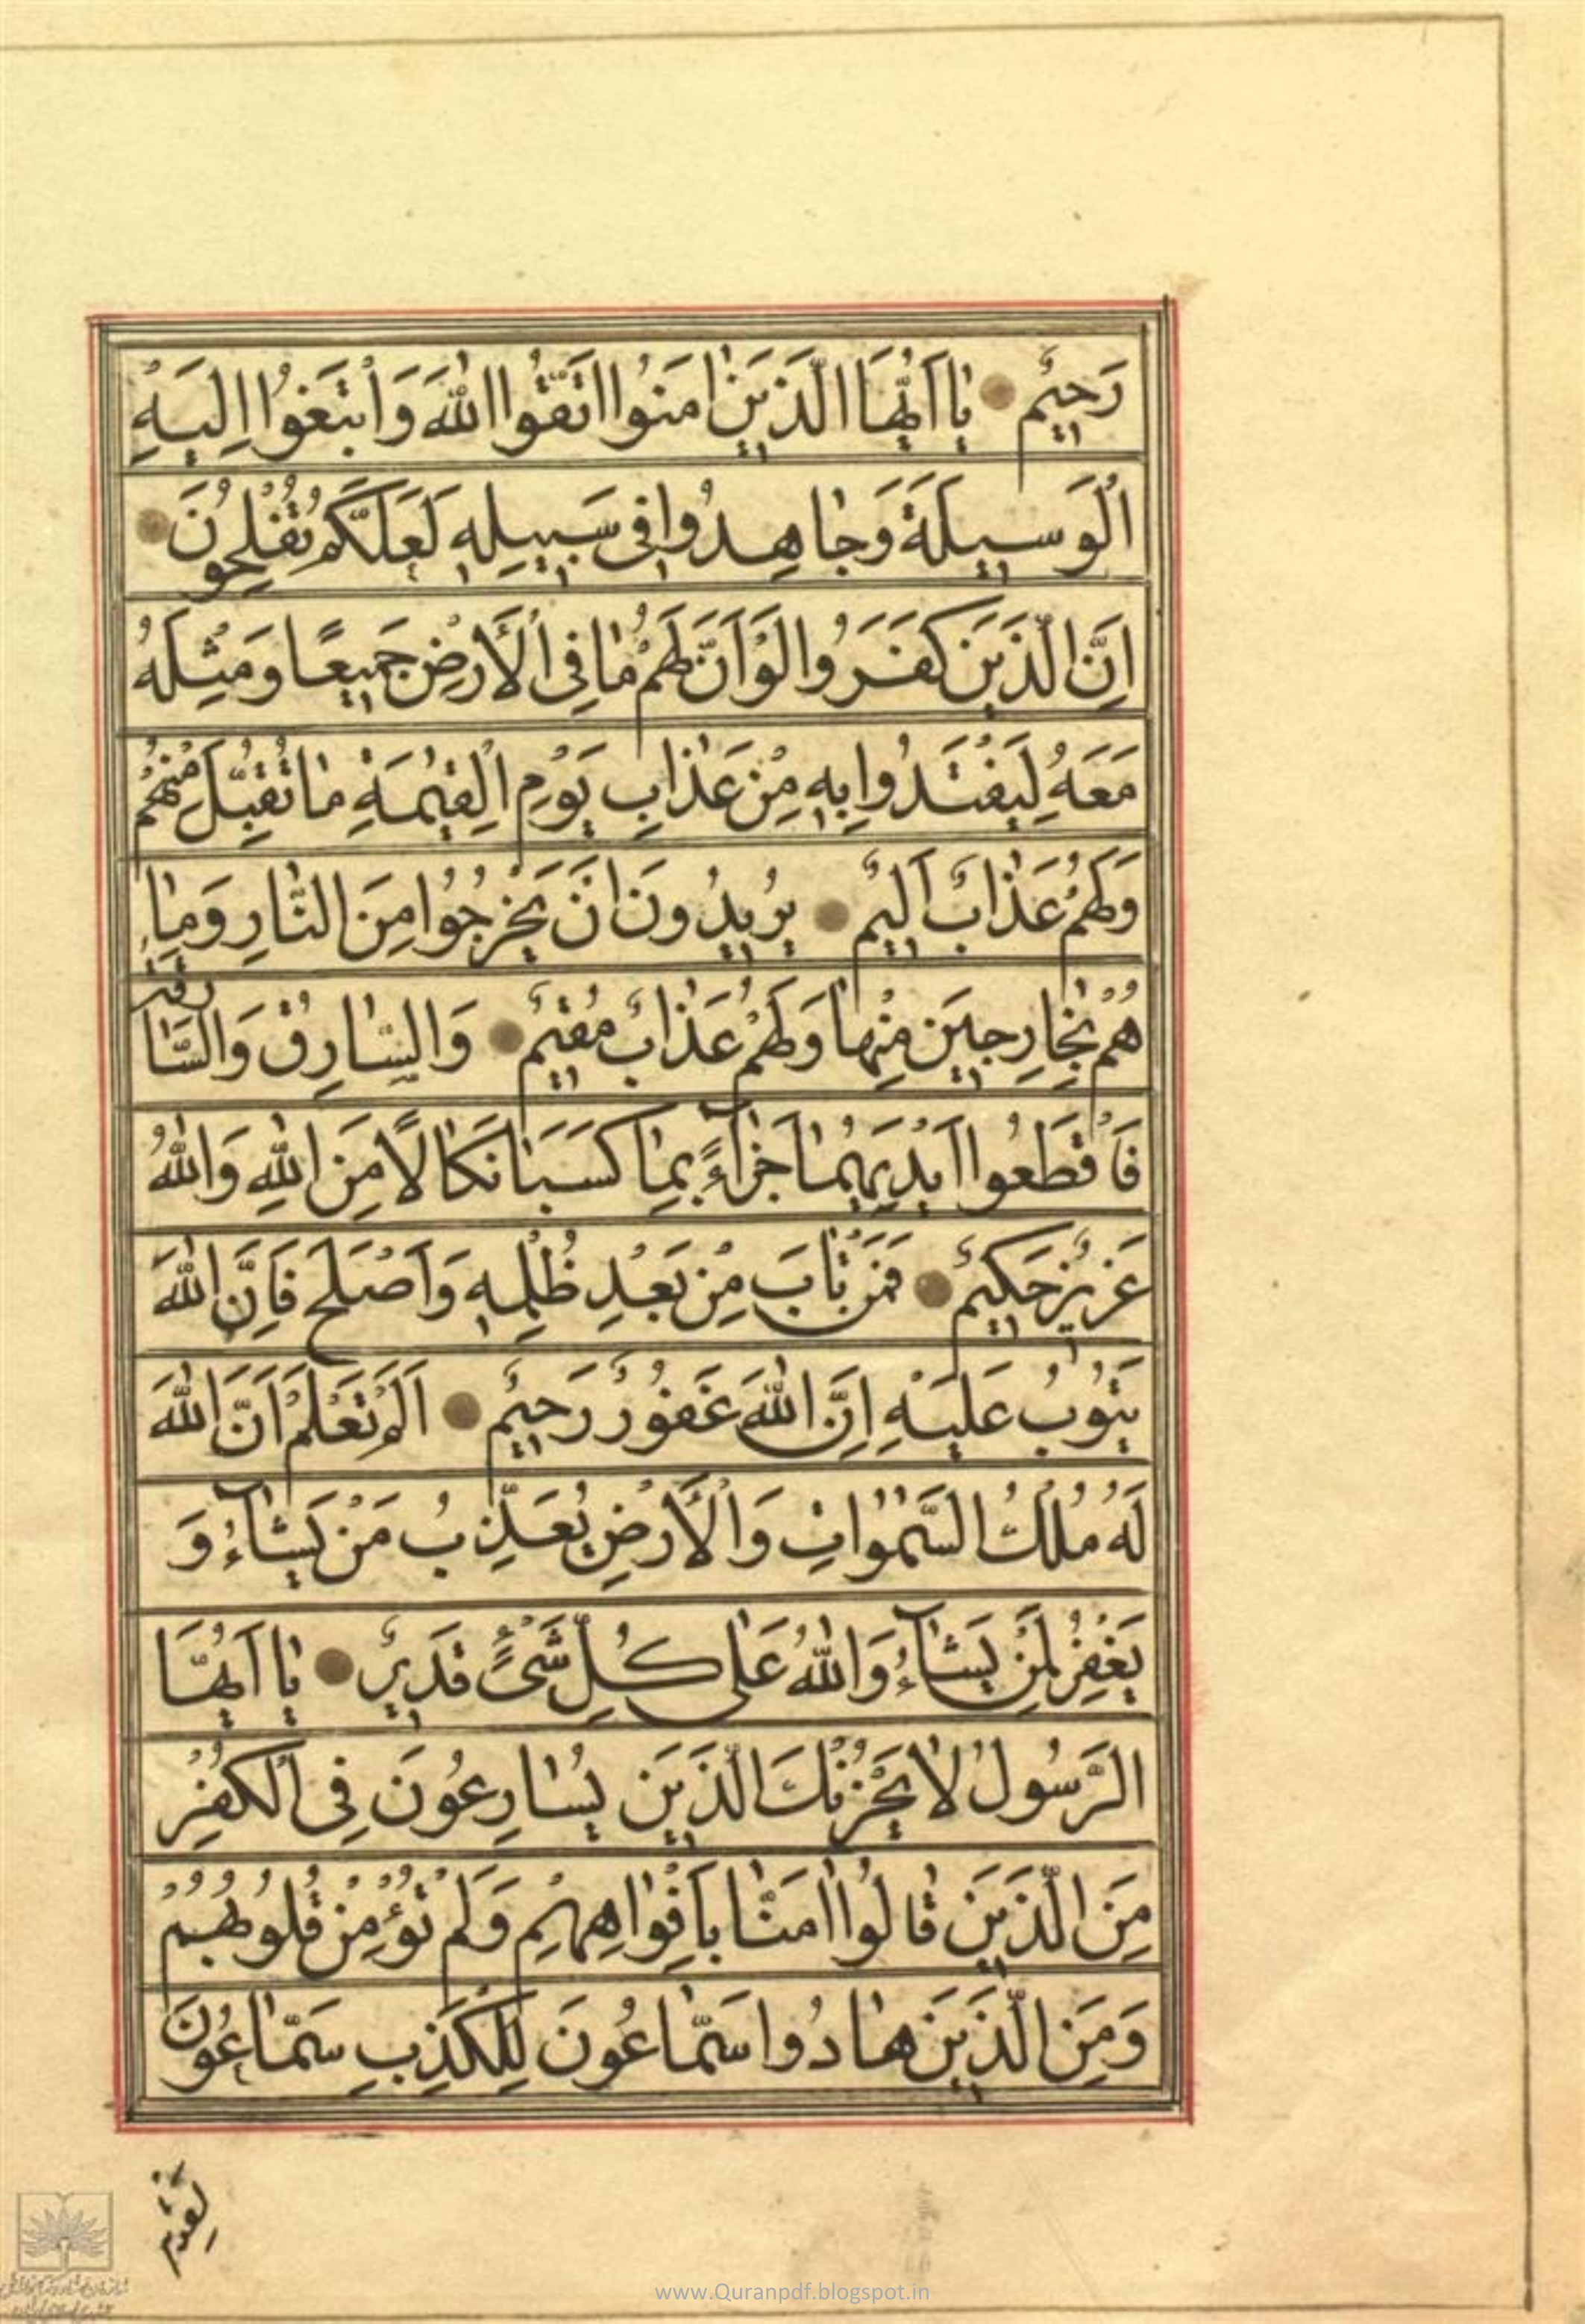 رَحيٌم يٰا اَيُّهَا الَّذَيَنٰ امَنُوا اتَّقُوا اللهَ وَابْتَغوُا اِليَهِْ
الْوَسيلَةَ وَجٰاهِدُوا فى سَبيلِهِ لَعَلَّكُمْ تُفْلِحُونَ
اِنَّ الَّذَينَ كَفَرُوا لَوْ اَنَّ لَهُمْ مٰا فِى الْأَرْضِ جَميعًا وَمِثْلَهُ
مَعَهُ لِيَفْتَدُوا بِهِ مِنْ عَذٰابِ يَوْمِ الْقِيٰمَةِ مٰا تُقُبِّلَ مِنْهُمْ
وَلَهُمْ عَذٰابٌ اَليمٌ يُريدُونَ اَنْ يَخْرُجُوا مِنَ النّٰارِ وَمٰا
هُمْ بِخٰارِجينَ مِنْهٰا وَلَهُمْ عَذٰابٌ مُقيمٌ وَالسّٰارِقُ وَالسّٰارِقَةُ
فَاقْطَعُوا اَيْدِيَهُمٰا جَزٰآءً بِمٰا كَسَبٰا نَكٰالًا مِنَ اللهِ وَاللهُ
عَزيزٌ حَكيمٌ فَمَنْ تٰابَ مِنْ بَعْدِ ظُلْمِهِ وَاَصْلَحَ فَاِنَّ اللهَ
يَتُوبُ عَلَيْهِ اِنَّ اللهَ غَفُورٌ رَحيمٌ اَلَمْ تَعْلَمْ اَنَّ اللهَ
لَهُ مُلْكُ السَّمٰوٰاتِ وَالْأَرْضِ يُعَذِّبُ مَنْ يَشٰآءُ وَ
يَغْفِرُ لِمَنْ يَشٰآءُ وَاللهُ عَلٰى كُلِّ شَىْءٍ قَديرٌ يٰا اَيُّهَا
الرَّسُولُ لٰا يَحْزُنْكَ الَّذَينَ يُسٰارِعُونَ فِى الْكُفْرِ
مِنَ الَّذَينَ قٰالُوا اٰمَنّٰا بِاَفْوٰاهِهِمْ وَلَمْ تُؤْمِنْ قُلُوبُهُمْ
وَمِنَ الَّذَينَ هٰادُوا سَمّٰاعُونَ لِلْكَذِبِ سَمّٰاعُونَ
لِقَوْمٍ
www.Quranpdf.blogspot.in